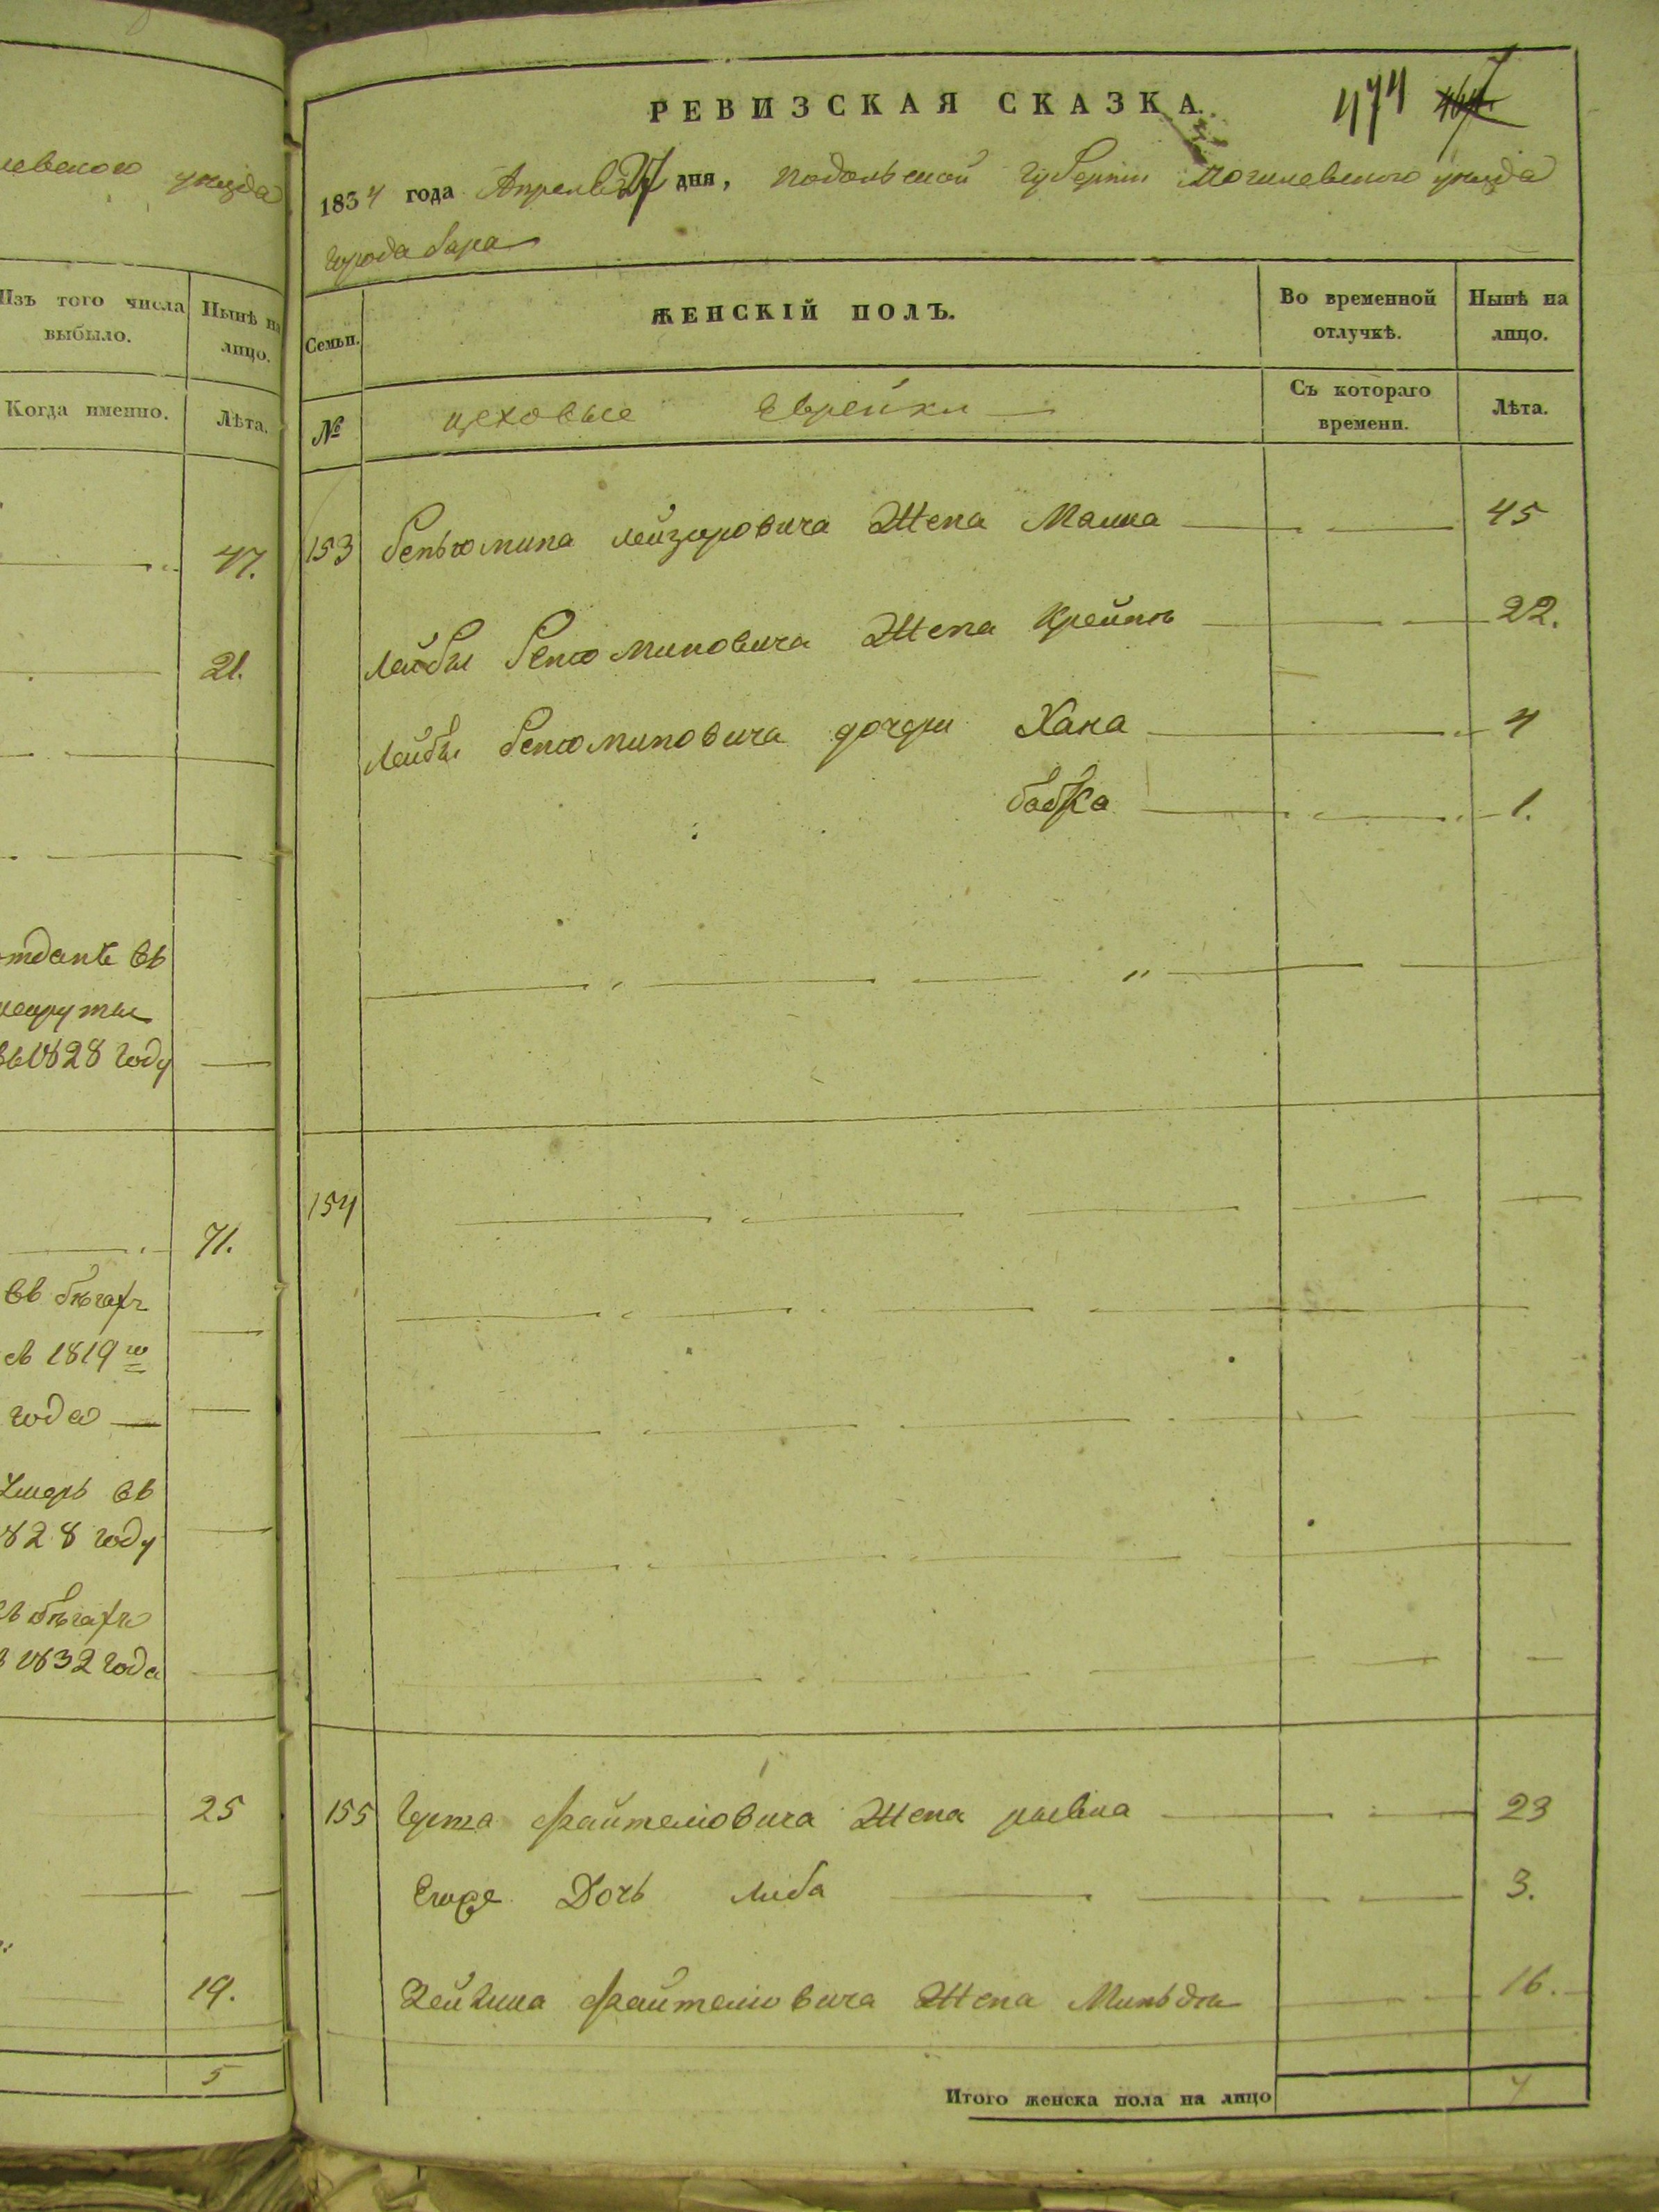 левского уезда
Изъ того числа
выбыло.
Нынѣ на
лицо.
Когда именно.
Лѣта.
47.
21.
отданъ въ
рекруты
въ 1828 году
71.
въ бѣгахъ
съ 1819 го
года
Умеръ въ
1828 году
въ бѣгахъ
1832 года
25
19.
5
РЕВИЗСКАЯ СКАЗКА.
474
1834 года Апреля 27 дня, Подольской Губернии Могилевского уезда
города Бара
Семьи.
ЖЕНСКІЙ ПОЛЪ.
Во временной
отлучкѣ.
Нынѣ на
лицо.
№
цеховые Еврейки
Съ котораго
времени.
Лѣта.
153 Беньюмина Лейзоровича Жена Малка 45
Лейбы Бенюминовича Жена Крейна 22.
Лейбы Бенюминовича дочери Хана 4
бабка 1.
154
155 Файтелiовича Жена 23
Егоже Дочь Либа 3.
Файтелiовича Жена Миньдя 16.
Итого женска пола на лицо 7